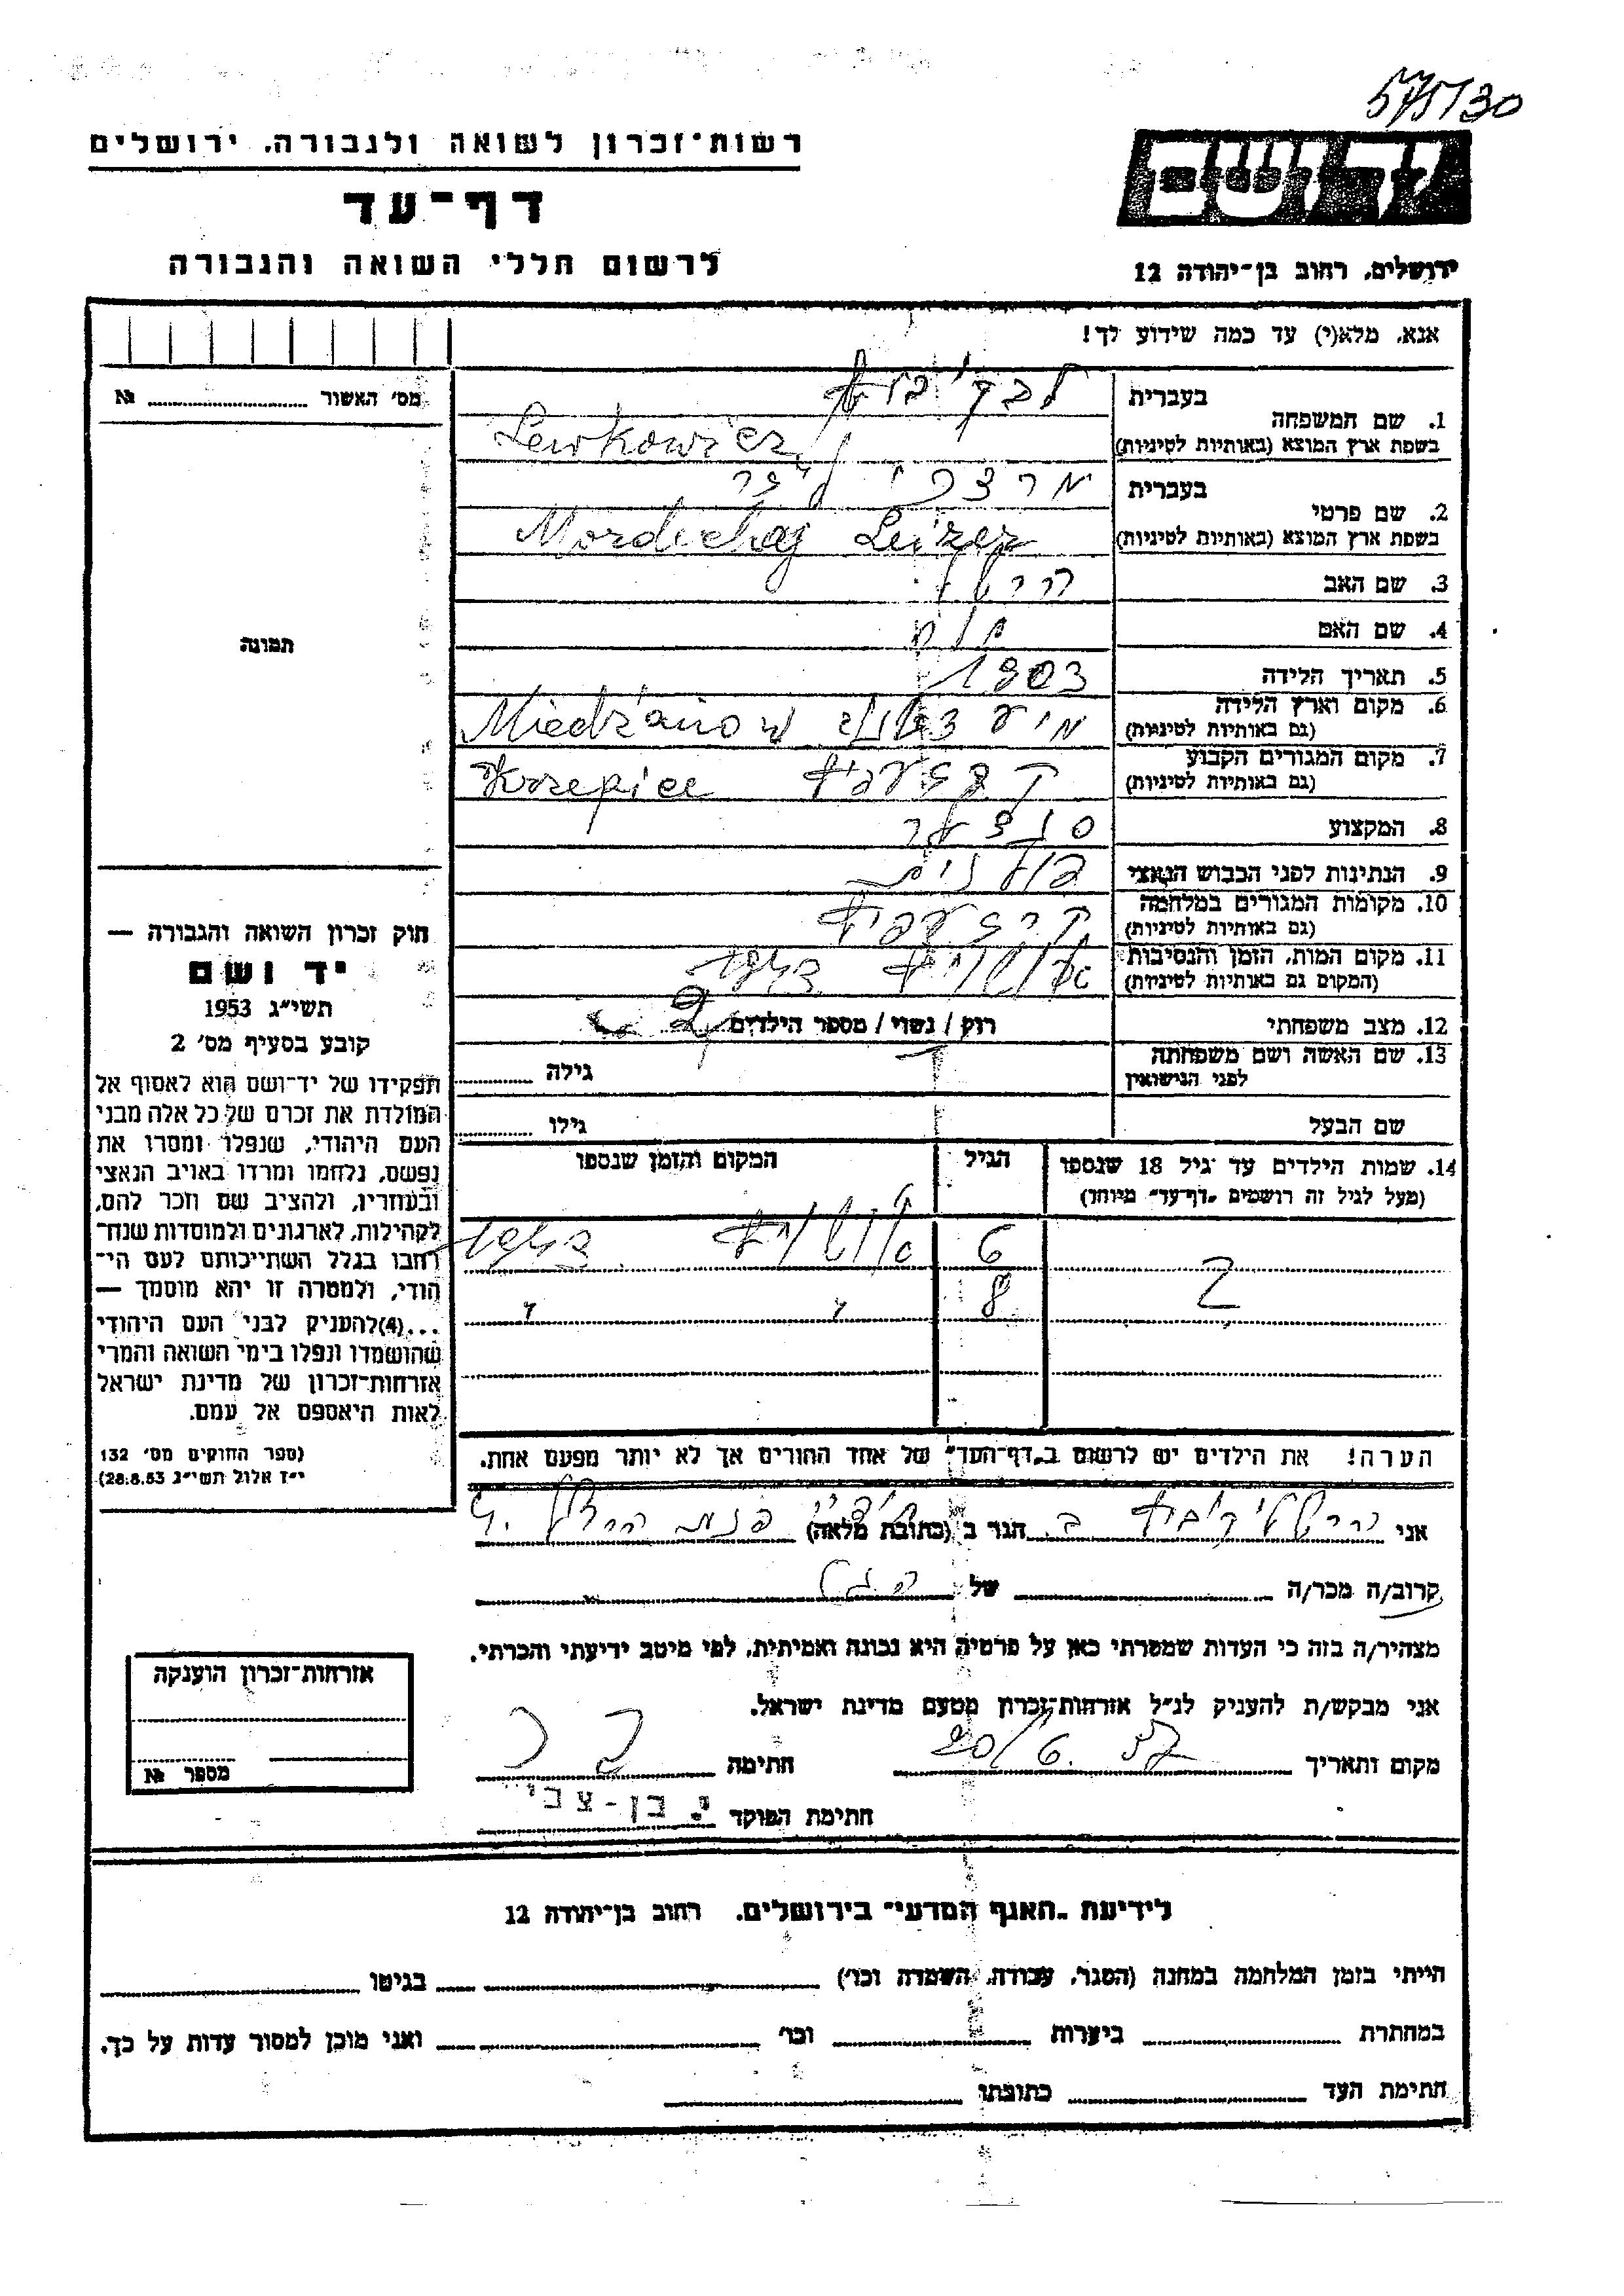 575/30
רשות־זכרון לשואה ולגבורה, ירושלים
יד ושם
דף־עד
לרשום חללי השואה והגבורה
ירושלים, רחוב בן־יהודה 12
אנא, מלא(י) עד כמה שידוע לך!
מס׳ האשור № 
תמונה
1. שם המשפחה בעברית
בשפת ארץ המוצא (באותיות לטיניות) Lewkowicz
2. שם פרטי בעברית מרדכי לייזר
בשפת ארץ המוצא (באותיות לטיניות) Mordechaj Leizer
3. שם האב הירש
4. שם האם
5. תאריך הלידה 1903
6. מקום וארץ הלידה
(גם באותיות לטיניות) Miedžanow
7. מקום המגורים הקבוע
(גם באותיות לטיניות) Krzepice
8. המקצוע סוצער
9. הנתינות לפני הכבוש הנאצי פולנית
10. מקומות המגורים במלחמה
(גם באותיות לטיניות)
11. מקום המות, הזמן והנסיבות
(המקום גם באותיות לטיניות)
12. מצב משפחתי רוק / נשוי / מספר הילדים 2
13. שם האשה ושם משפחתה
לפני הנישואין גילה
שם הבעל גילו
14. שמות הילדים עד גיל 18 שנספו הגיל המקום והזמן שנספו
(מעל לגיל זה רושמים „דף־עד״ מיוחד)
6
2 8 " "
הערה! את הילדים יש לרשום ב„דף־העד״ של אחד ההורים אך לא יותר מפעם אחת.
חוק זכרון השואה והגבורה —
יד ושם
תשי״ג 1953
קובע בסעיף מס׳ 2
תפקידו של יד־ושם הוא לאסוף אל
המולדת את זכרם של כל אלה מבני
העם היהודי, שנפלו ומסרו את
נפשם, נלחמו ומרדו באויב הנאצי
ובעוזריו, ולהציב שם וזכר להם,
לקהילות, לארגונים ולמוסדות שנח־
רבו בגלל השתייכותם לעם הי־
הודי, ולמטרה זו יהא מוסמך —
...(4)להעניק לבני העם היהודי
שהושמדו ונפלו בימי השואה והמרי
אזרחות־זכרון של מדינת ישראל
לאות היאספם אל עמם.
(ספר החוקים מס׳ 132
י״ז אלול תשי״ג 28.8.53)
אני הגר ב (כתובת מלאה)
קרוב/ה מכר/ה של
מצהיר/ה בזה כי העדות שמסרתי כאן על פרטיה היא נכונה ואמיתית, לפי מיטב ידיעתי והכרתי.
אני מבקש/ת להעניק לנ״ל אזרחות־זכרון מטעם מדינת ישראל.
מקום ותאריך 20/6. 57 חתימה
חתימת הפוקד י. בן-צבי
אזרחות־זכרון הוענקה
מספר №
לידיעת „האגף המדעי״ בירושלים, רחוב בן־יהודה 12
הייתי בזמן המלחמה במחנה (הסגר, עבודה, השמדה וכו׳) בגיטו
במחתרת ביערות וכו׳ ואני מוכן למסור עדות על כך.
חתימת העד כתובתו